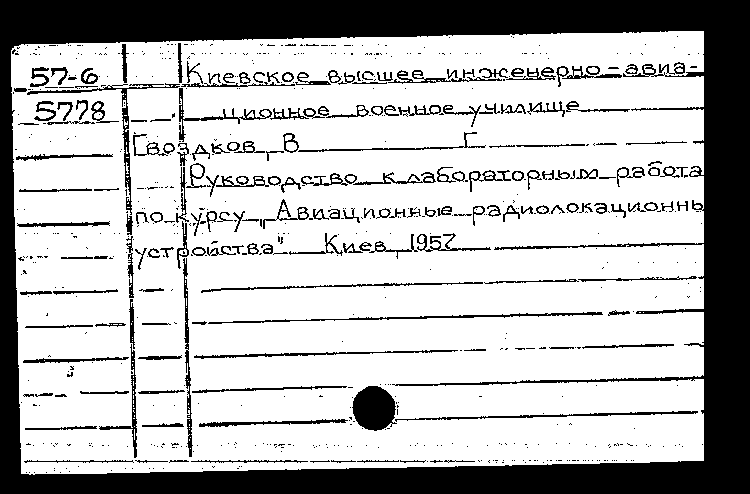 57-6 Киевское высшее инженерно-авиа-
5778 ционное военное училище
Гвоздков, В Г
Руководство к лабораторным работа
по курсу „Авиационные радиолокационнь
устройства" Киев, 1957